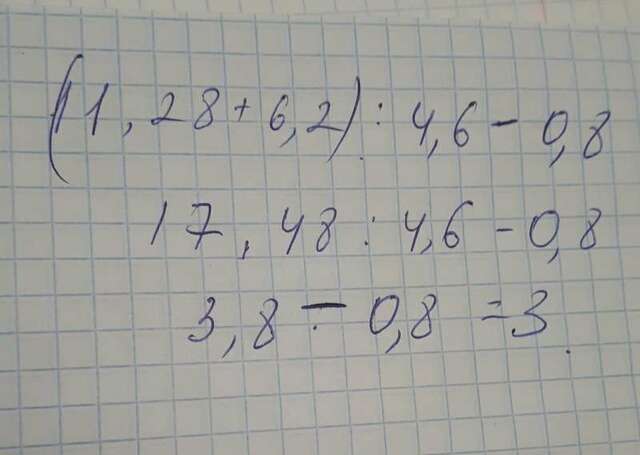 (11,28+6,2):4,6-0,8
17,48:4,6-0,8
3,8-0,8=3.